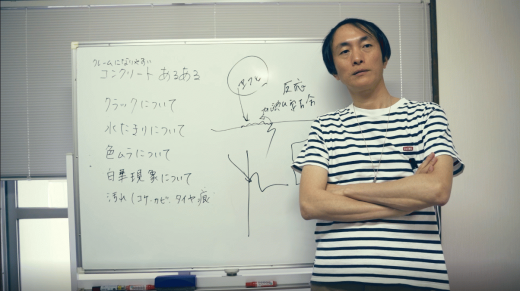 クレームになりやすい
コンクリート あるある
クラックについて
水たまりについて
色ムラについて
白華現象について
汚れ(コケ、カビ、タイヤ痕
反応